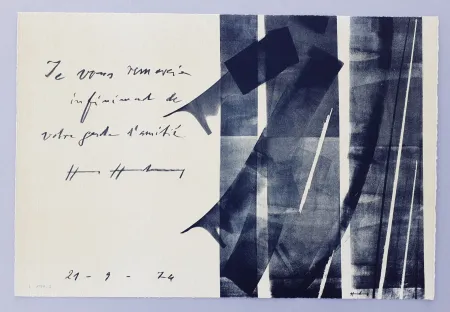 Je vous remercie
infiniment de
votre geste d'amitié
Hans Hartung
21 - 9 - 74